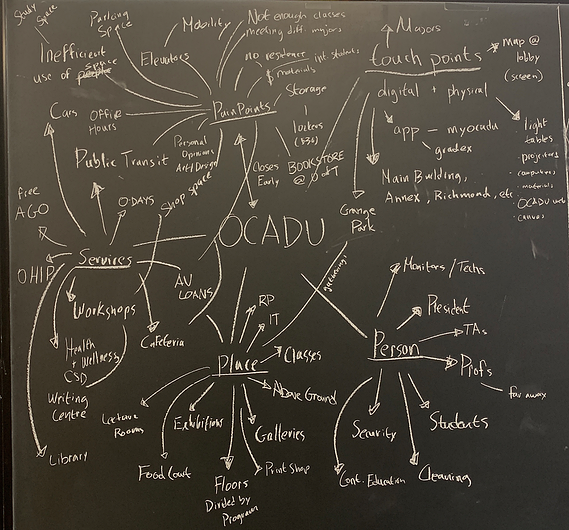 Study
Space
Parking
Space
Mobility
Not enough classes
meeting diff. majors
Majors
Inefficient
space
use of
Elevators
no residence int students
$ materials
touch points
map @
lobby
(screen)
Storage
digital + physical
Cars
Office
Hours
PainPoints
lockers
(53¢)
app — myocadu
gradex
light
tables
projectors
computers
materials
OCADU web
canvas
Public Transit
Personal
Opinions
Art/Design
Shop space
Closes
Early
BOOKSTORE
@ U of T
Main Building,
Annex, Richmond, etc
free
AGO
O DAYS
Grange
Park
OCADU
OHIP
Services
AV
LOANS
Monitors / Techs
Workshops
RP
IT
President
TAs
Health
+ Wellness
CSD
Cafeteria
Place
Classes
Person
Profs
far away
Writing
Centre
Lecture
Rooms
Exhibitions
Above Ground
Students
Galleries
Security
Library
Food Court
Floors
Divided by
Program
Print Shop
Cont. Education
Cleaning